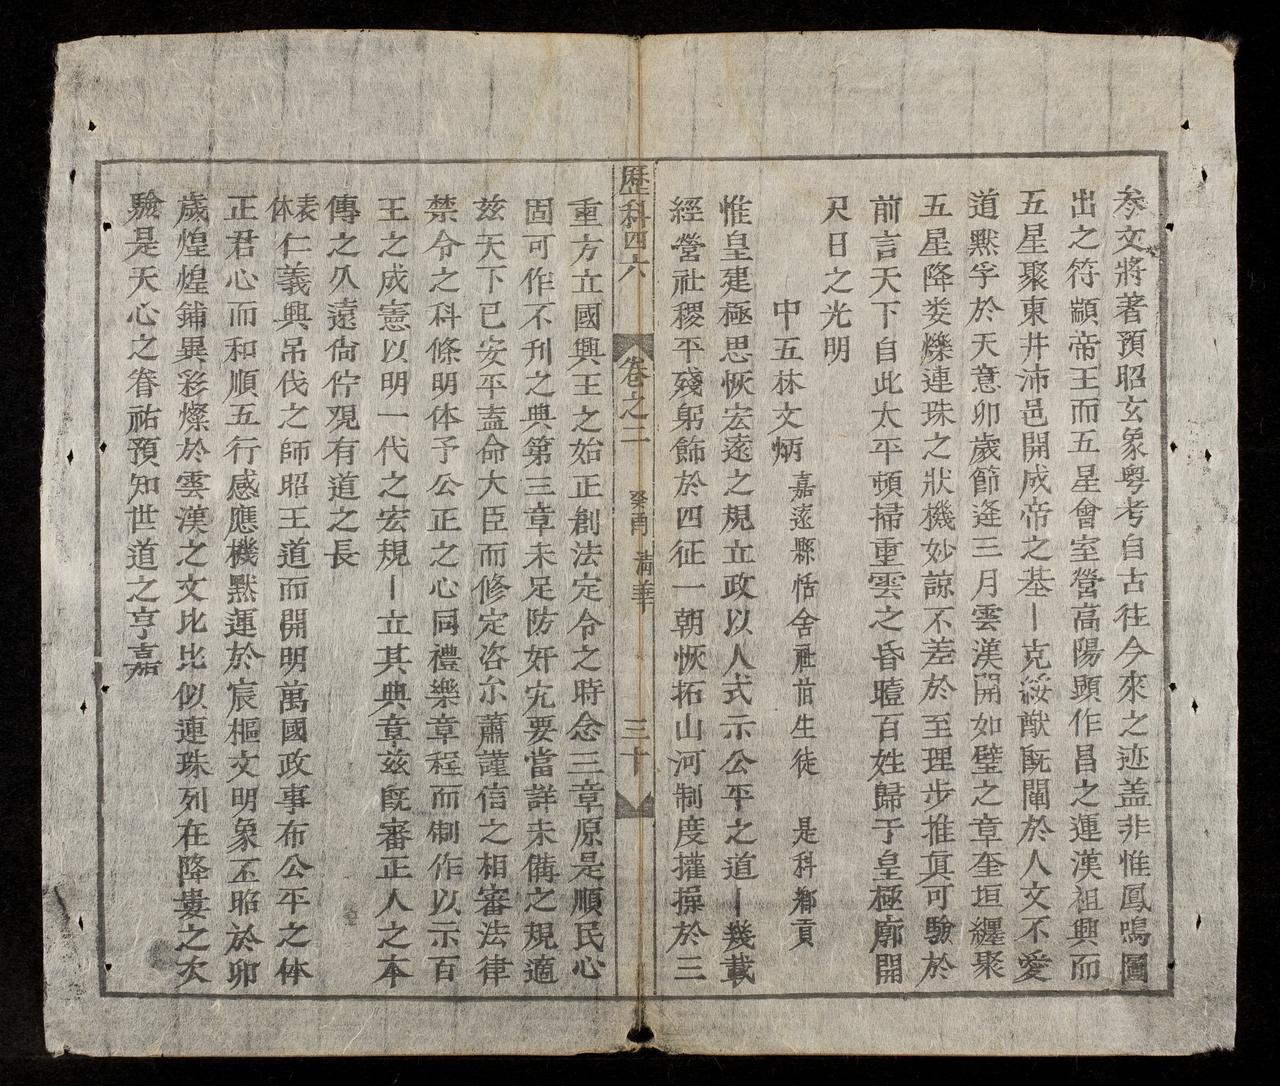 參文將著預昭玄象粵考自古往今來之迹盖非惟鳳鳴圖
出之符顓帝王而五星會室營高陽顕作昌之運漢祖興而
五星聚東井沛邑開咸帝之基〡克綏猷既闡於人文不愛
道默孚於天意卯歲節逢三月雲漢開如璧之章奎垣纒聚
五星降娄爍連珠之狀機妙諒不差於至理步推眞可驗於
前言天下自此太平頓掃重雲之昏曀百姓歸于皇極廓開
尺日之光明
中五林文炳 嘉遠縣恬舍社首生徒 是科鄉貢
惟皇建極思恢宏遠之規立政以人式示公平之道〡幾載
經營社稷平殘躬飾於四征一朝恢拓山河制度搉操於三
歷科四六 卷之二 癸酉 清華 三十
重方立國興王之始正創法定令之時念三章原是順民心
固可作不刊之典第三章未足防奸宄要當詳未備之規適
兹天下已安平盍命大臣而修定咨尒蕭謹信之相審法律
禁令之科條明体予公正之心同禮樂章程而制作以示百
王之成憲以明一代之宏規〡立其典章兹既審正人之本
傳之久遠尙佇覌有道之長
表体仁義興吊伐之師昭王道而開明萬國政事布公平之体
正君心而和順五行感應機默運於宸樞文明象丕昭於卯
歲煌煌鋪異彩燦於雲漢之文比比似連珠列在降婁之次
驗是天心之眷祐預知世道之亨嘉